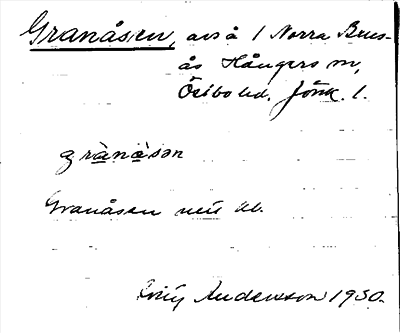 Granåsen, avs å 1 Norra Brus-
ås Hångers sn,
Östbo hd. Jönk. l.
grànàsən
Granåsen
Andersson 1930.